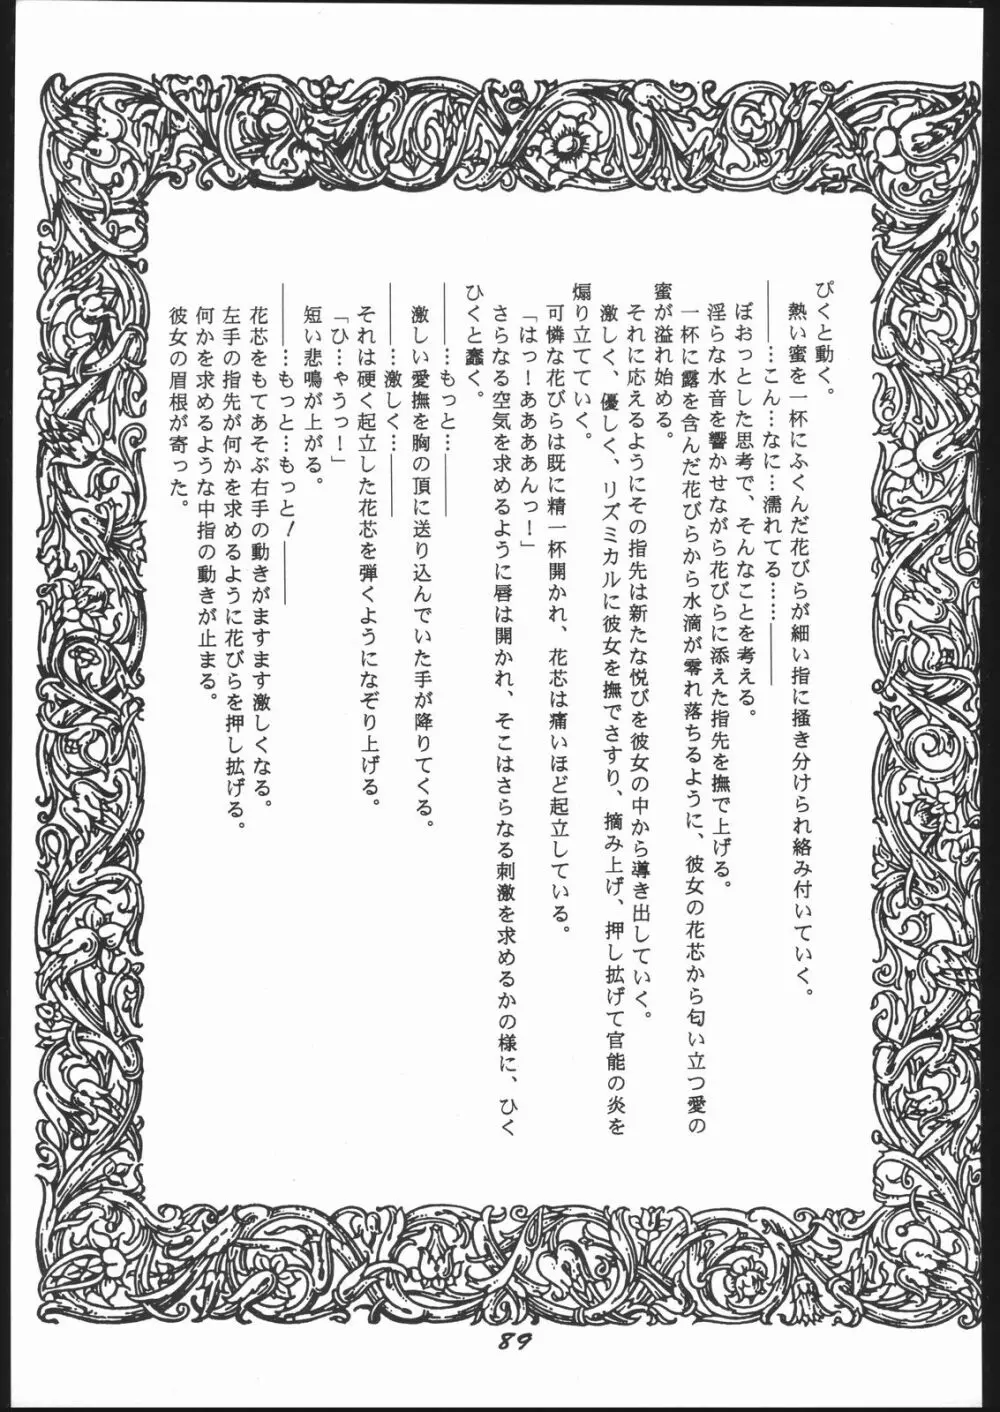 ぴくと動く。
熱い蜜を一杯にふくんだ花びらが細い指に掻き分けられ絡み付いていく。
――…こん…なに…濡れてる……――
ぼおっとした思考で、そんなことを考える。
淫らな水音を響かせながら花びらに添えた指先を撫で上げる。
一杯に露を含んだ花びらから水滴が零れ落ちるように、彼女の花芯から匂い立つ愛の
蜜が溢れ始める。
それに応えるようにその指先は新たな悦びを彼女の中から導き出していく。
激しく、優しく、リズミカルに彼女を撫でさすり、摘み上げ、押し拡げて官能の炎を
煽り立てていく。
可憐な花びらは既に精一杯開かれ、花芯は痛いほど起立している。
「はっ！ああああんっ！」
さらなる空気を求めるように唇は開かれ、そこはさらなる刺激を求めるかの様に、ひく
ひくと蠢く。
――…もっと…――
激しい愛撫を胸の頂に送り込んでいた手が降りてくる。
――…激しく…――
それは硬く起立した花芯を弾くようになぞり上げる。
「ひ…ゃうっ！」
短い悲鳴が上がる。
――…もっと…もっと！――
花芯をもてあそぶ右手の動きがますます激しくなる。
左手の指先が何かを求めるように花びらを押し拡げる。
何かを求めるような中指の動きが止まる。
彼女の眉根が寄った。
89